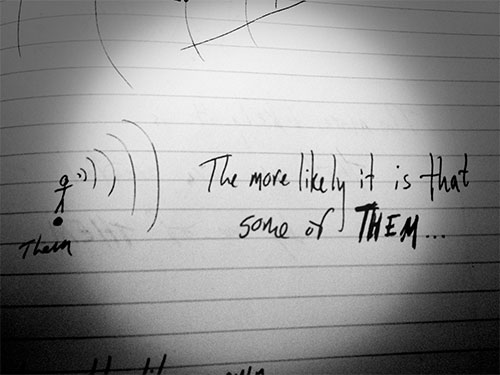 The more likely it is that
some of THEM...
Them